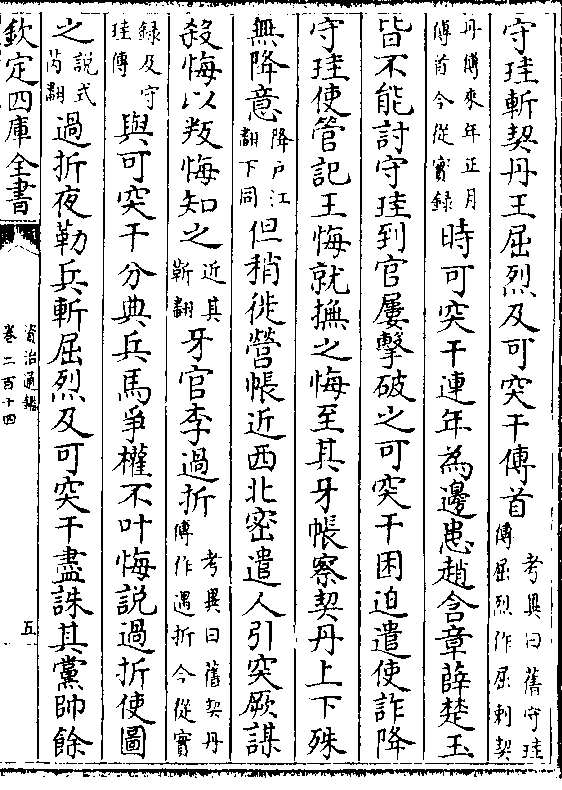 守珪斬契丹王屈烈及可突干傳首考異曰舊守珪傳屈烈作屈剌契
丹傳來年正月傳首今從實録時可突干連年為邊患趙含章薛楚玉
皆不能討守珪到官屢擊破之可突干困迫遣使詐降
守珪使管記王悔就撫之悔至其牙帳察契丹上下殊
無降意降户江翻下同但稍徙營帳近西北密遣人引突厥謀
殺悔以叛悔知之近其靳翻牙官李過折考異曰舊契丹傳作遇折今從實
録及守珪傳與可突干分典兵馬爭權不叶悔説過折使圖
之説式芮翻過折夜勒兵斬屈烈及可突干盡誅其黨帥餘
欽定四庫全書
資治通鑑
卷二百十四
五